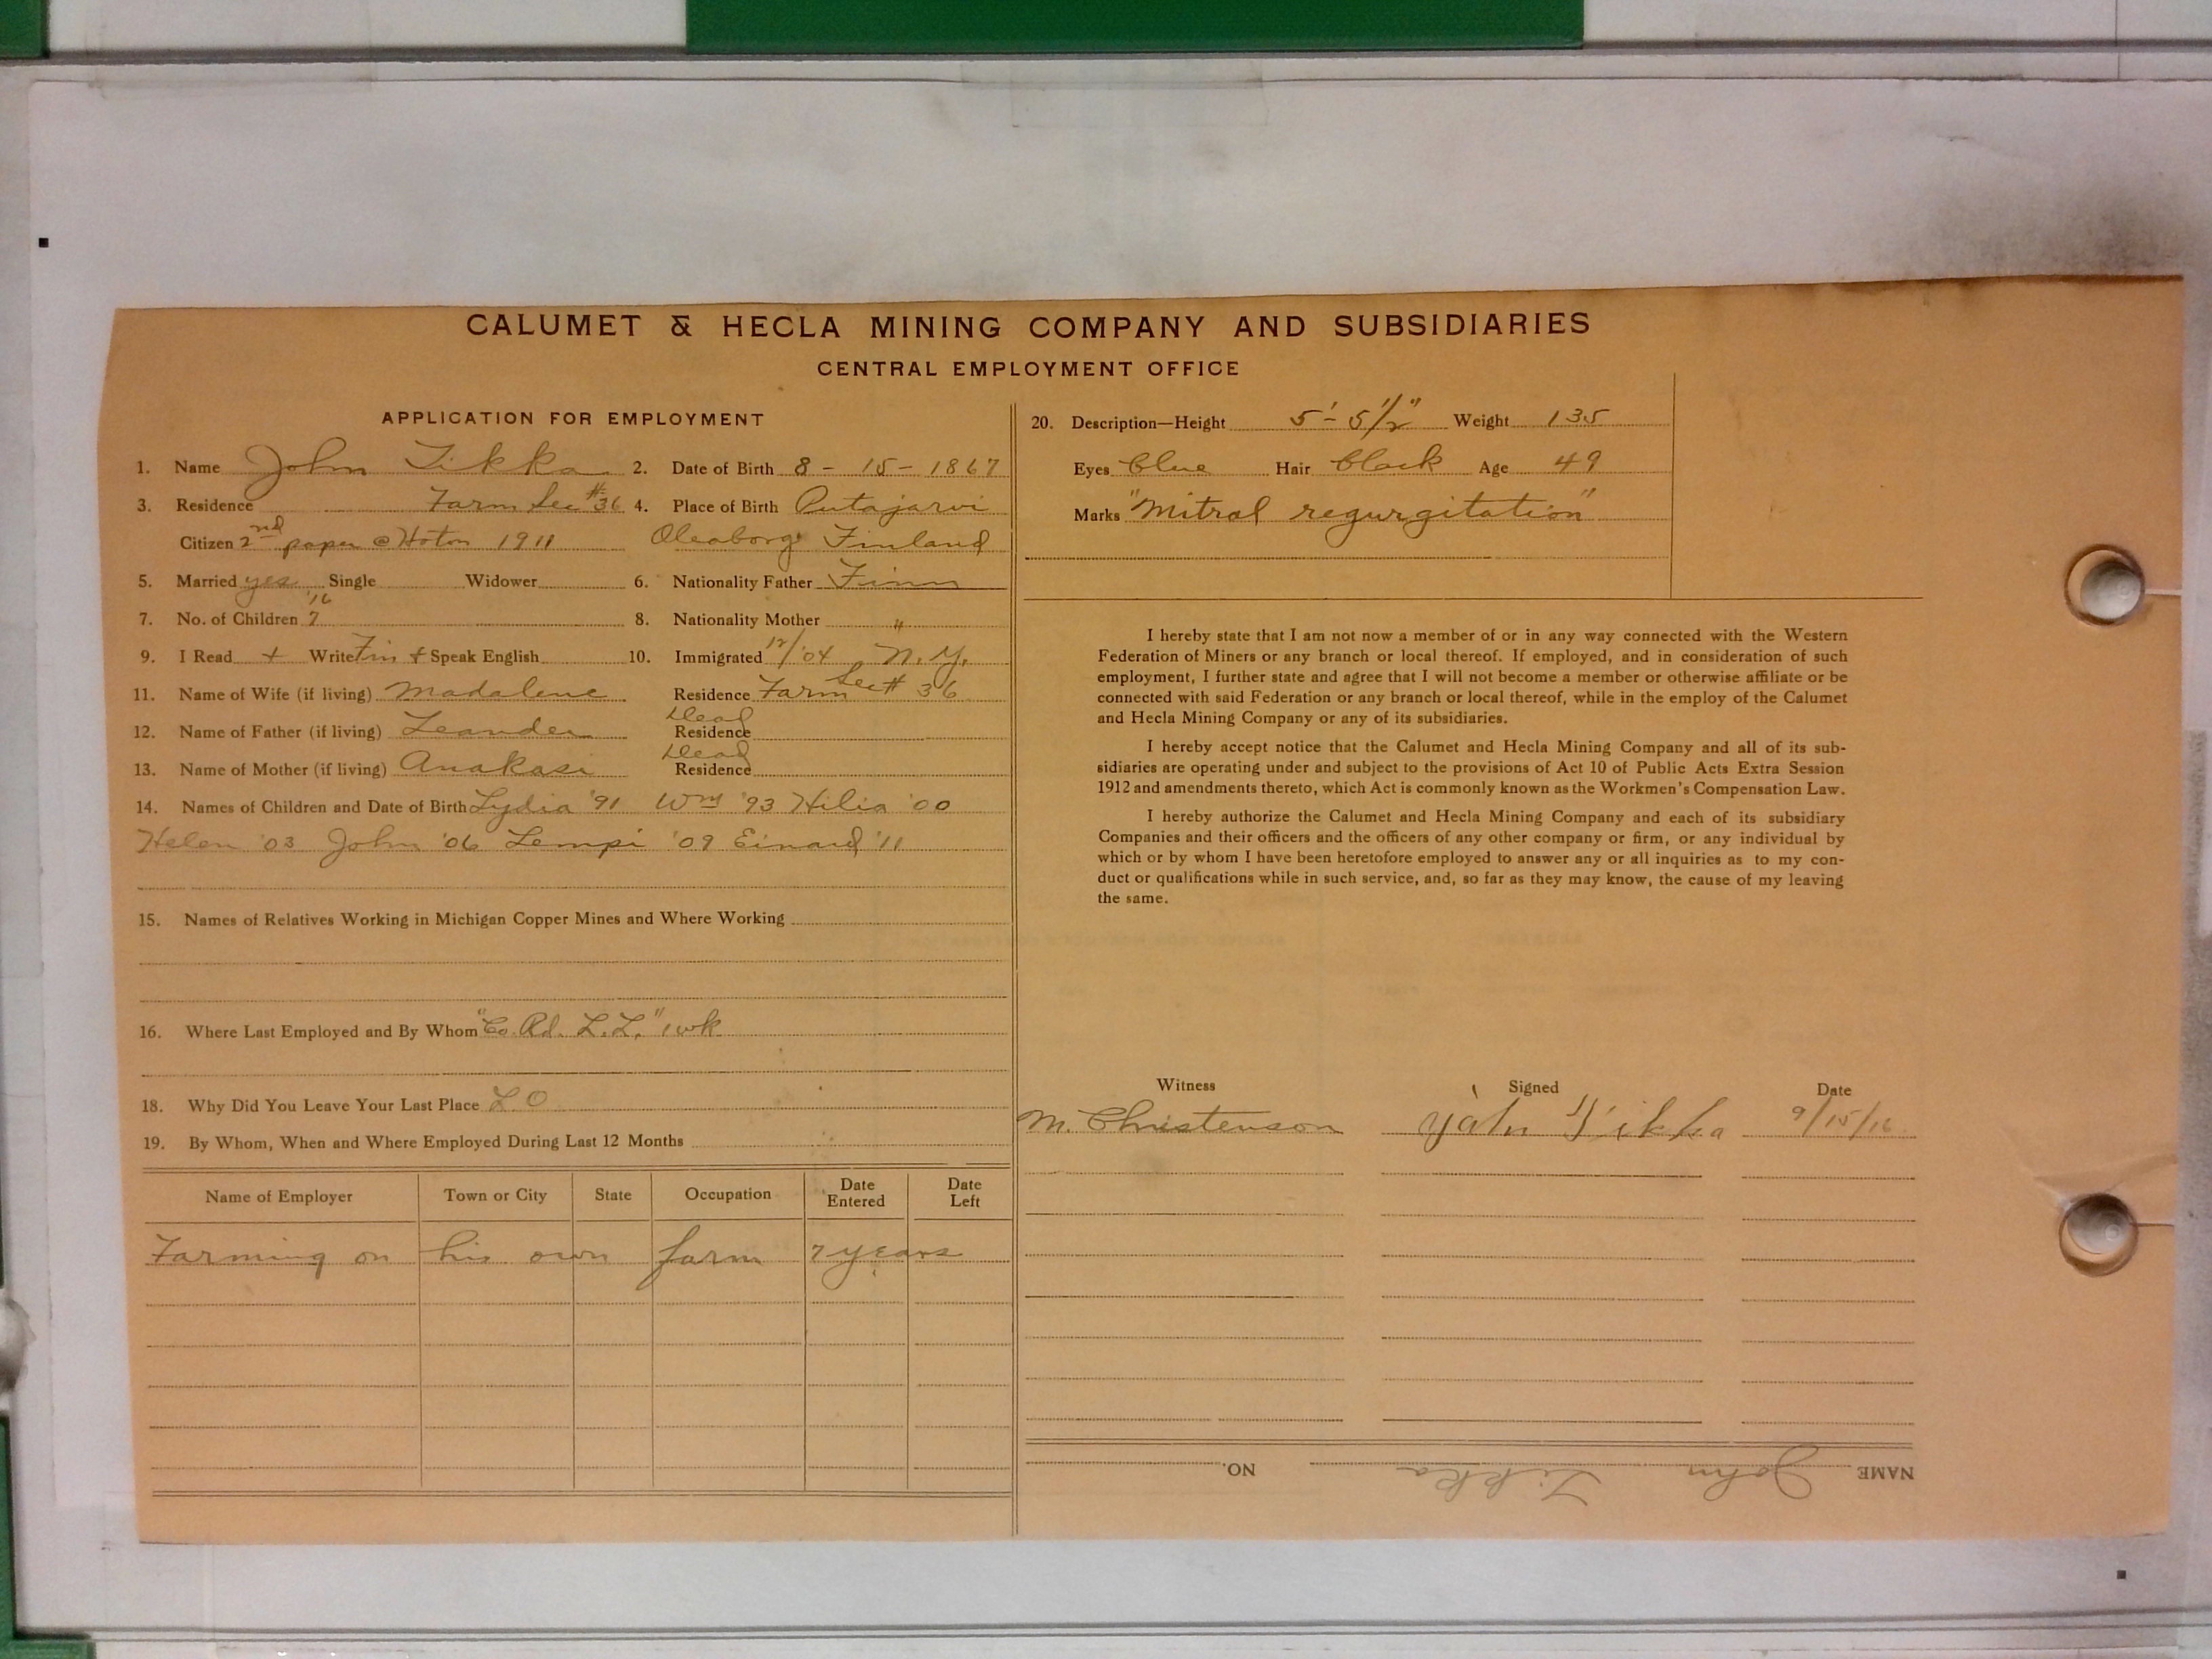 CALUMET & HECLA MINING COMPANY AND SUBSIDIARIES
CENTRAL EMPLOYMENT OFFICE
APPLICATION FOR EMPLOYMENT
1. Name John Tikka 2. Date of Birth 8 - 15 - 1867
3. Residence Farm Sec #36 4. Place of Birth Putajarvi
Citizen 2nd paper @ Hoton 1911 Oleaborg Finland
5. Married yes Single Widower 6. Nationality Father Finn
7. No. of Children 7 '16 8. Nationality Mother "
9. I Read + Write Fin + Speak English 10. Immigrated 12/'04 N.Y.
11. Name of Wife (if living) Madalene Residence Farm Sec # 36
12. Name of Father (if living) Leander Residence Dead
13. Name of Mother (if living) Anakasi Residence Dead
14. Names of Children and Date of Birth Lydia '91 Wm '93 Hilia '00
Helen '03 John '06 Lempi '09 Einard '11
15. Names of Relatives Working in Michigan Copper Mines and Where Working
16. Where Last Employed and By Whom "Co. Rd. L.L." 1 wk
18. Why Did You Leave Your Last Place L.O
19. By Whom, When and Where Employed During Last 12 Months
Name of Employer Town or City State Occupation Date Entered Date Left
Farming on his own farm 7 years
20. Description—Height 5'- 5 1/2" Weight 135
Eyes blue Hair black Age 49
Marks "Mitral regurgitation"
I hereby state that I am not now a member of or in any way connected with the Western
Federation of Miners or any branch or local thereof. If employed, and in consideration of such
employment, I further state and agree that I will not become a member or otherwise affiliate or be
connected with said Federation or any branch or local thereof, while in the employ of the Calumet
and Hecla Mining Company or any of its subsidiaries.
I hereby accept notice that the Calumet and Hecla Mining Company and all of its sub-
sidiaries are operating under and subject to the provisions of Act 10 of Public Acts Extra Session
1912 and amendments thereto, which Act is commonly known as the Workmen's Compensation Law.
I hereby authorize the Calumet and Hecla Mining Company and each of its subsidiary
Companies and their officers and the officers of any other company or firm, or any individual by
which or by whom I have been heretofore employed to answer any or all inquiries as to my con-
duct or qualifications while in such service, and, so far as they may know, the cause of my leaving
the same.
Witness Signed Date
M. Christenson John Tikka 9/15/16
NAME John Tikka NO.